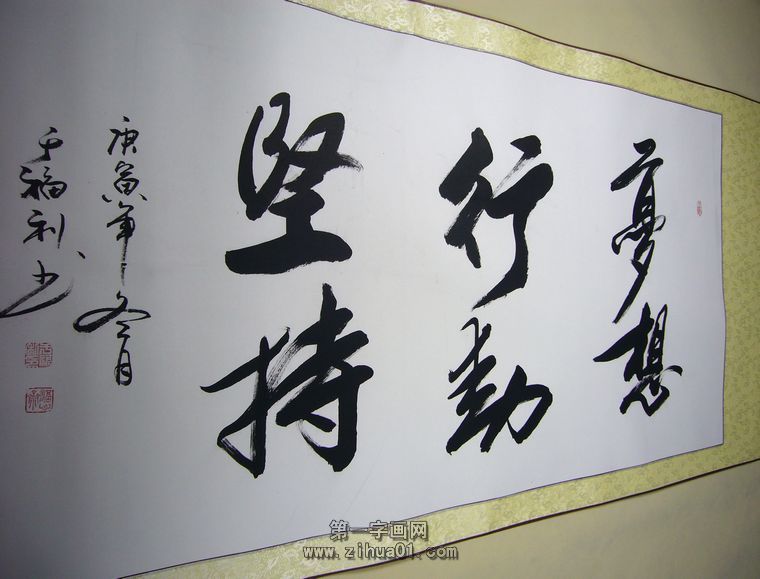 夢想
行动
坚持
庚寅年冬月
于福利书
第一字画网
www.zihua01.com